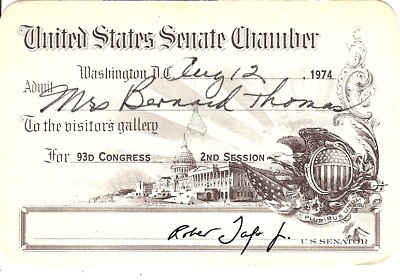 United States Senate Chamber
Washington D.C. Aug 12, 1974
Admit Mrs Bernard Thomas
To the visitor's gallery
For 93D CONGRESS 2ND SESSION
PLURIBUS
Robert Taft Jr.
U S SENATOR